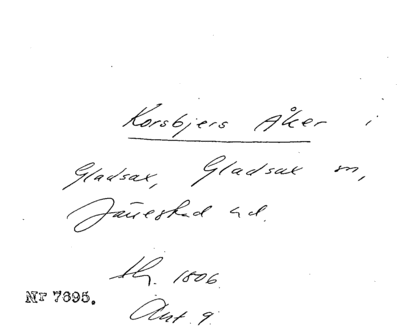 Korsbjers Åker i
Gladsax, Gladsax sn,
Järrestad hd.
Sk. 1806.
Akt. 9.
Nr 7695.